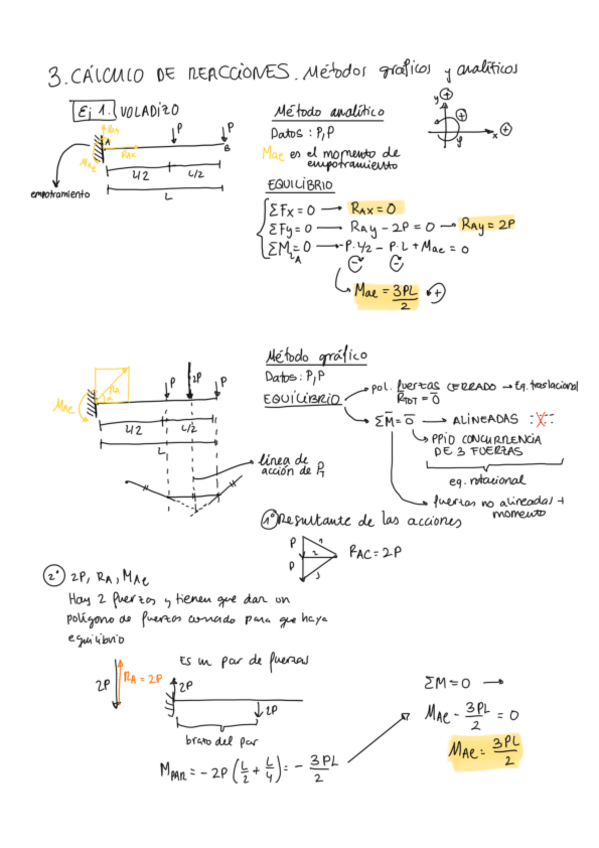 3. CÁLCULO DE REACCIONES. Métodos gráficos y analíticos
Ej 1. VOLADIZO
Método analítico
Datos: P, P
Mae es el momento de
empotramiento
EQUILIBRIO
ΣFx = 0 → RAx = 0
ΣFy = 0 → RAy - 2P = 0 → RAy = 2P
ΣM_A = 0 → -P·L/2 - P·L + Mae = 0
Mae = 3PL/2 +
y +
+
x +
RAy
A
RAx
Mae
P
P
B
L/2
L/2
L
empotramiento
Método gráfico
Datos: P, P
EQUILIBRIO
pol. fuerzas CERRADO → Eq. traslacional
R_TOT = 0
ΣM = 0 → ALINEADAS
PPIO CONCURRENCIA
DE 3 FUERZAS
eq. rotacional
fuerzas no alineadas +
momento
RA
α
MAe
P
2P
P
L/2
L/2
L
línea de
acción de P1
1º Resultante de las acciones
P
P
1
2
3
RAC = 2P
2º 2P, RA, MAe
Hay 2 fuerzas y tienen que dar un
polígono de fuerzas cerrado para que haya
equilibrio
2P
RA = 2P
Es un par de fuerzas
2P
2P
brazo del par
MPAR = -2P (L/2 + L/4) = - 3PL/2
ΣM = 0 →
MAe - 3PL/2 = 0
MAe = 3PL/2